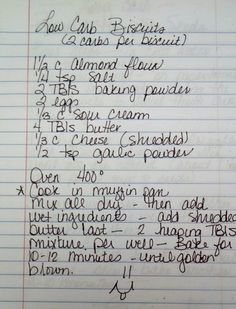 Low Carb Biscuits
(2 carbs per biscuit)
1 1/2 c almond flour
1/4 tsp salt
2 TBls baking powder
2 egg
1/3 c sour cream
4 TBls butter
1/3 c cheese (shredded)
1/2 tsp garlic powder
Oven 400°
* Cook in muffin pan
Mix all dry - then add
wet ingredients - add shredded
butter last - 2 heaping TBls
mixture per well - Bake for
10-12 minutes - until golden
brown.